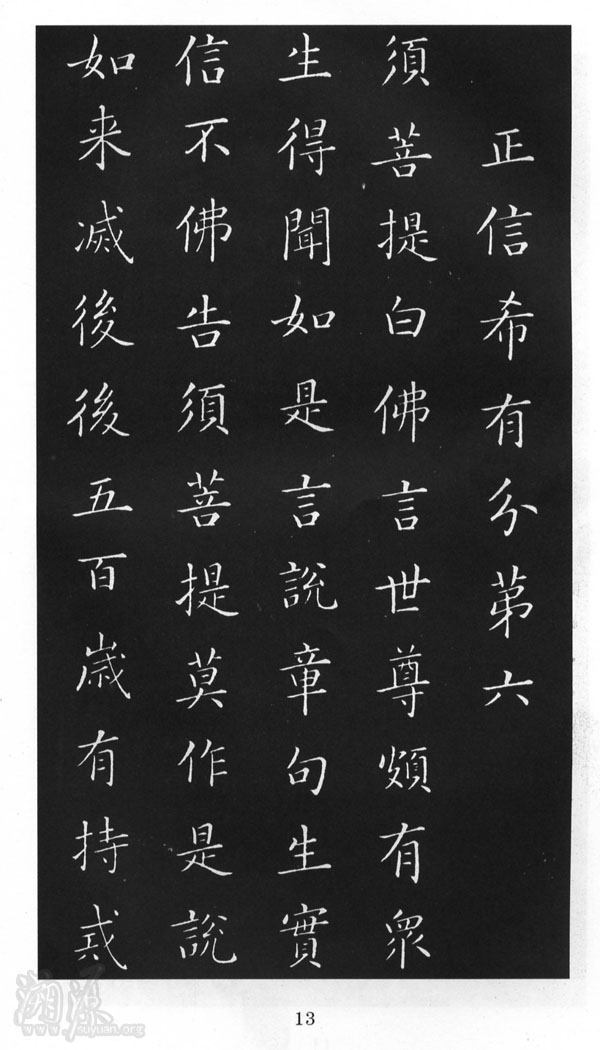 正信希有分第六
須菩提白佛言世尊頗有眾
生得聞如是言說章句生實
信不佛告須菩提莫作是說
如来滅後後五百歲有持戒
13
溯源
www.suyuan.org